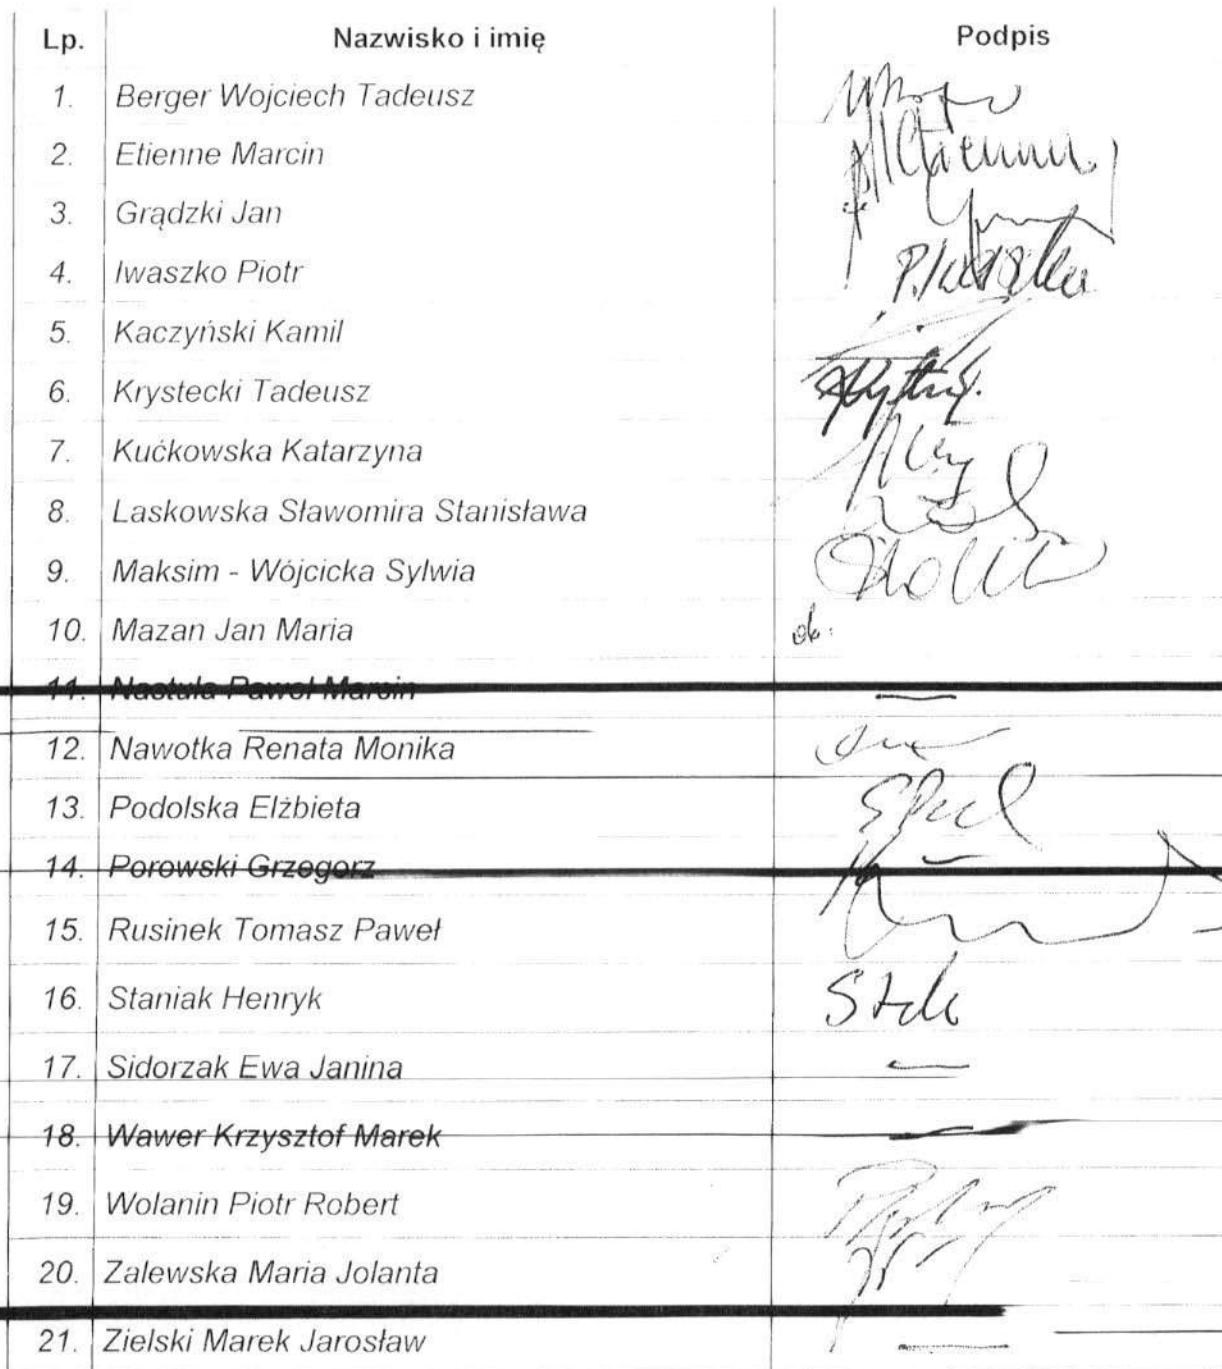 Lp. Nazwisko i imię Podpis
1. Berger Wojciech Tadeusz
2. Etienne Marcin MEtienne
3. Grądzki Jan
4. Iwaszko Piotr P.Iwaszko
5. Kaczyński Kamil
6. Krystecki Tadeusz
7. Kućkowska Katarzyna
8. Laskowska Sławomira Stanisława
9. Maksim - Wójcicka Sylwia
10. Mazan Jan Maria
11. Nastula Paweł Marcin
12. Nawotka Renata Monika
13. Podolska Elżbieta
14. Porowski Grzegorz
15. Rusinek Tomasz Paweł
16. Staniak Henryk
17. Sidorzak Ewa Janina
18. Wawer Krzysztof Marek
19. Wolanin Piotr Robert
20. Zalewska Maria Jolanta
21. Zielski Marek Jarosław